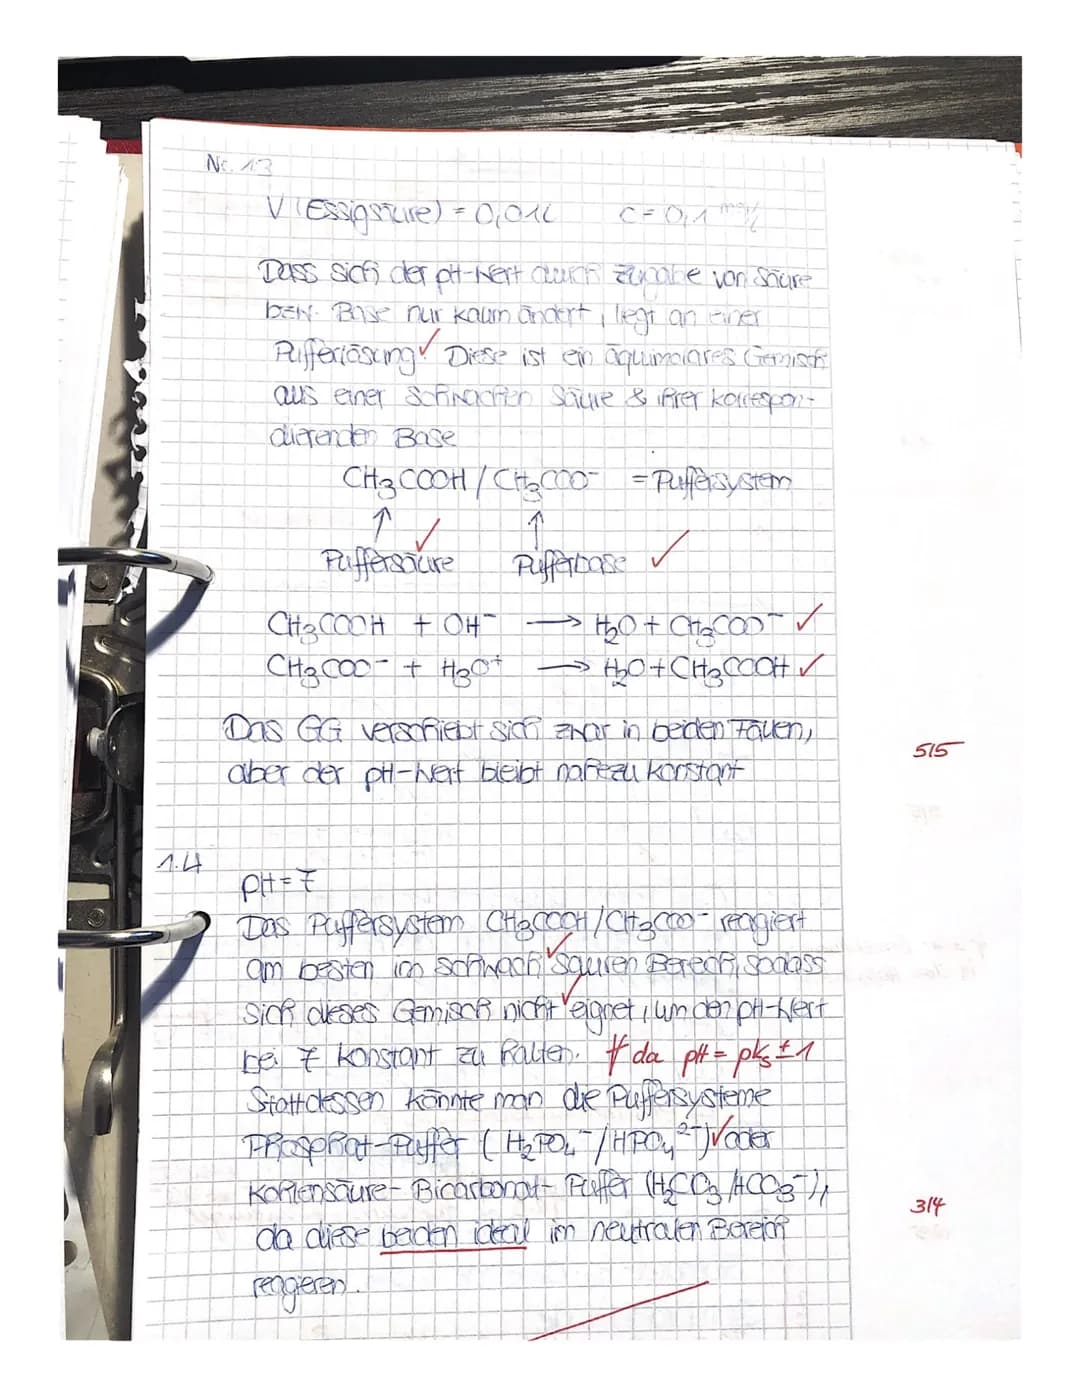 Nr. 1.3
V (Essigsäure) = 0,01L   c = 0,1 mol/L
Dass sich der pH-Wert durch Zugabe von Säure
bzw. Base nur kaum ändert, liegt an einer
Pufferlösung. Diese ist ein äquimolares Gemisch
aus einer schwachen Säure & ihrer korrespon-
dierenden Base
CH₃COOH / CH₃COO⁻ = Puffersystem
↑ ↑
Puffersäure Pufferbase
CH₃COOH + OH⁻ → H₂O + CH₃COO⁻
CH₃COO⁻ + H₃O⁺ → H₂O + CH₃COOH
Das GG verschiebt sich zwar in beiden Fällen,
5/5
aber der pH-Wert bleibt nahezu konstant
1.4
pH = 7
Das Puffersystem CH₃COOH/CH₃COO⁻ reagiert
am besten im schwach sauren Bereich, sodass
sich dieses Gemisch nicht eignet, um den pH-Wert
bei 7 konstant zu halten. da pH = pks ± 1
Stattdessen könnte man die Puffersysteme
Phosphat-Puffer (H₂PO₄⁻/HPO₄²⁻) oder
Kohlensäure-Bicarbonat-Puffer (H₂CO₃/HCO₃⁻),
3/4
da diese beiden ideal im neutralen Bereich
reagieren.